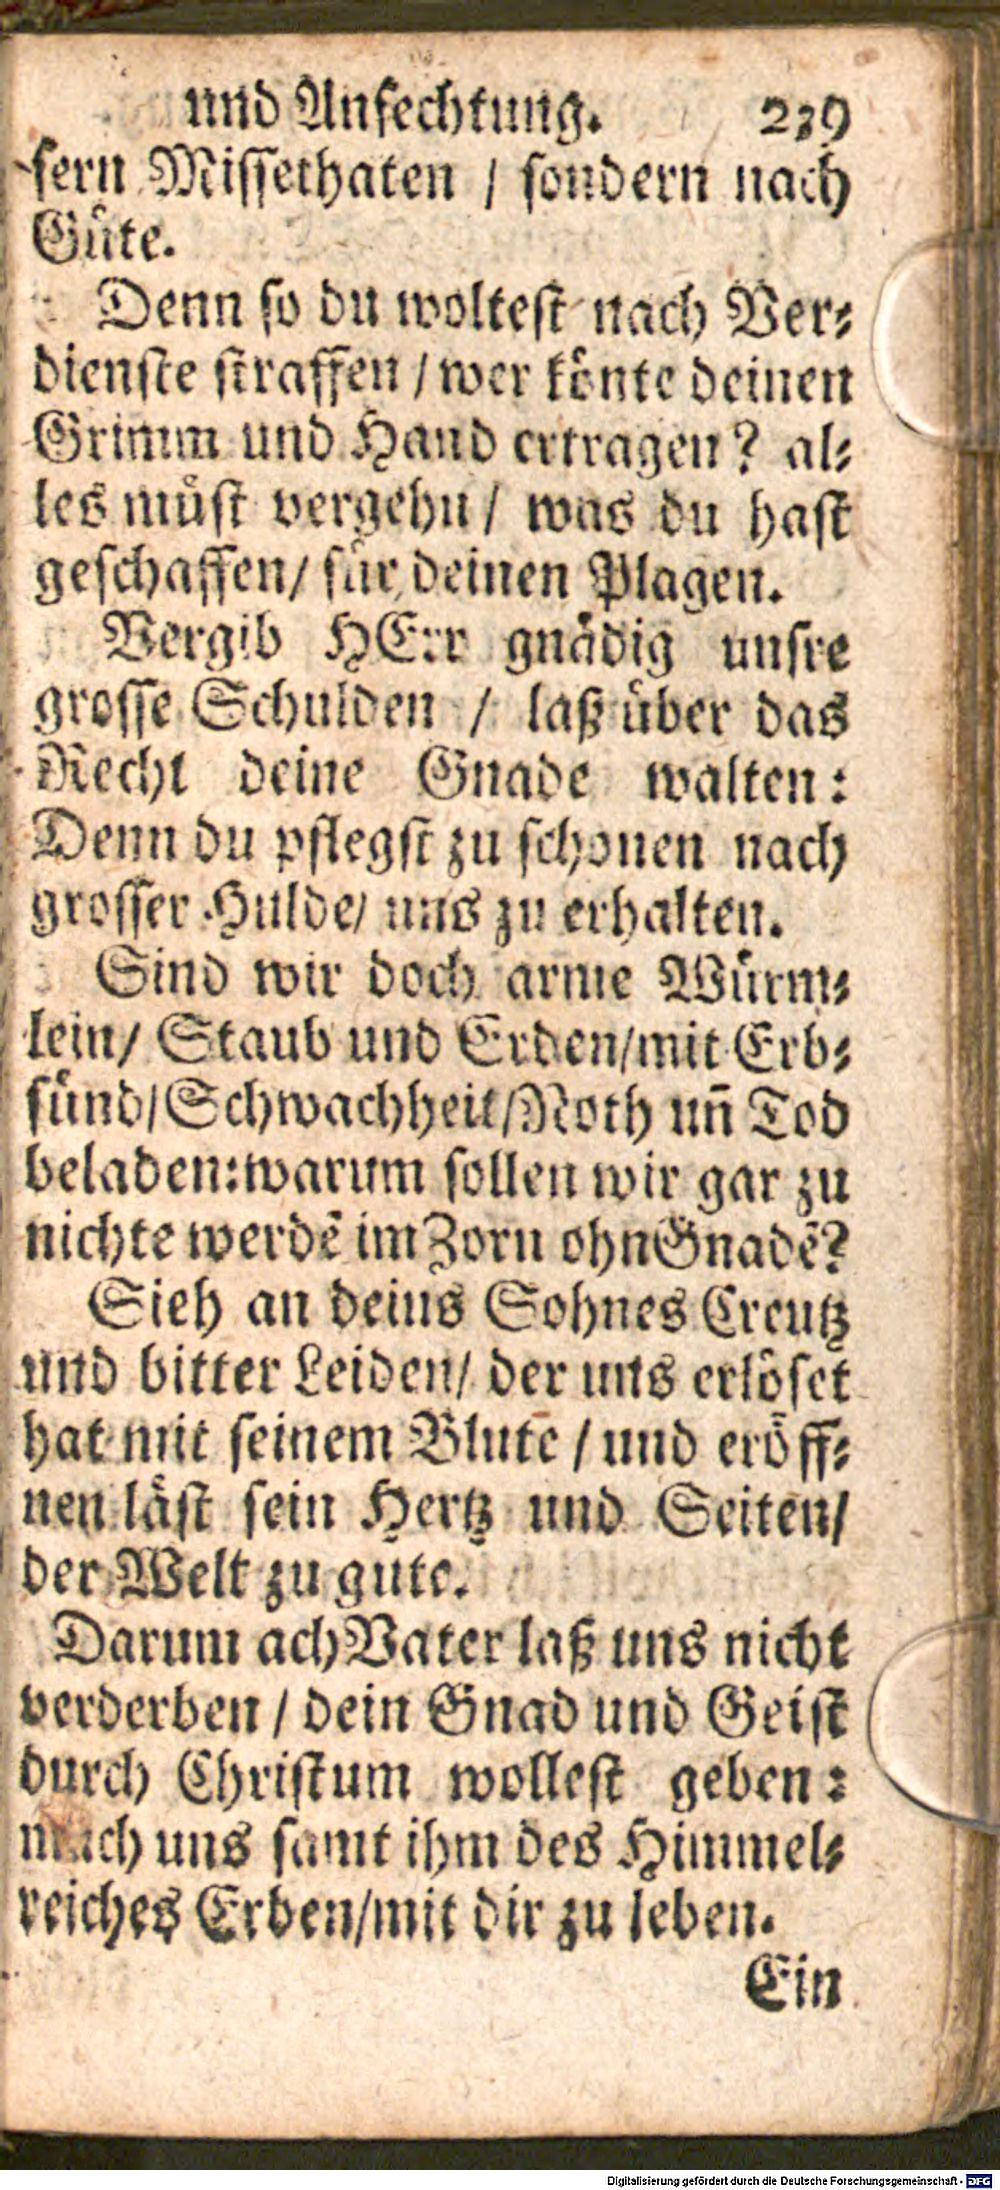 und Anfechtung. 239
sern Missethaten / sondern nach
Güte.
Denn so du woltest nach Ver-
dienste straffen / wer könte deinen
Grimm und Hand ertragen? al-
les müst vergehn / was du hast
geschaffen / für deinen Plagen.
Vergib HErr gnädig unsre
grosse Schulden / laß über das
Recht deine Gnade walten:
Denn du pflegst zu schonen nach
grosser Hulde / uns zu erhalten.
Sind wir doch arme Würm-
lein / Staub und Erden / mit Erb-
sünd / Schwachheit / Noth uñ Tod
beladen: warum sollen wir gar zu
nichte werdē im Zorn ohn Gnadē?
Sieh an deins Sohnes Creutz
und bitter Leiden / der uns erlöset
hat mit seinem Blute / und eröff-
nen läst sein Hertz und Seiten /
der Welt zu gute.
Darum ach Vater laß uns nicht
verderben / dein Gnad und Geist
durch Christum wollest geben:
mach uns samt ihm des Himmel-
reiches Erben / mit dir zu leben.
Ein
Digitalisierung gefördert durch die Deutsche Forschungsgemeinschaft - DFG